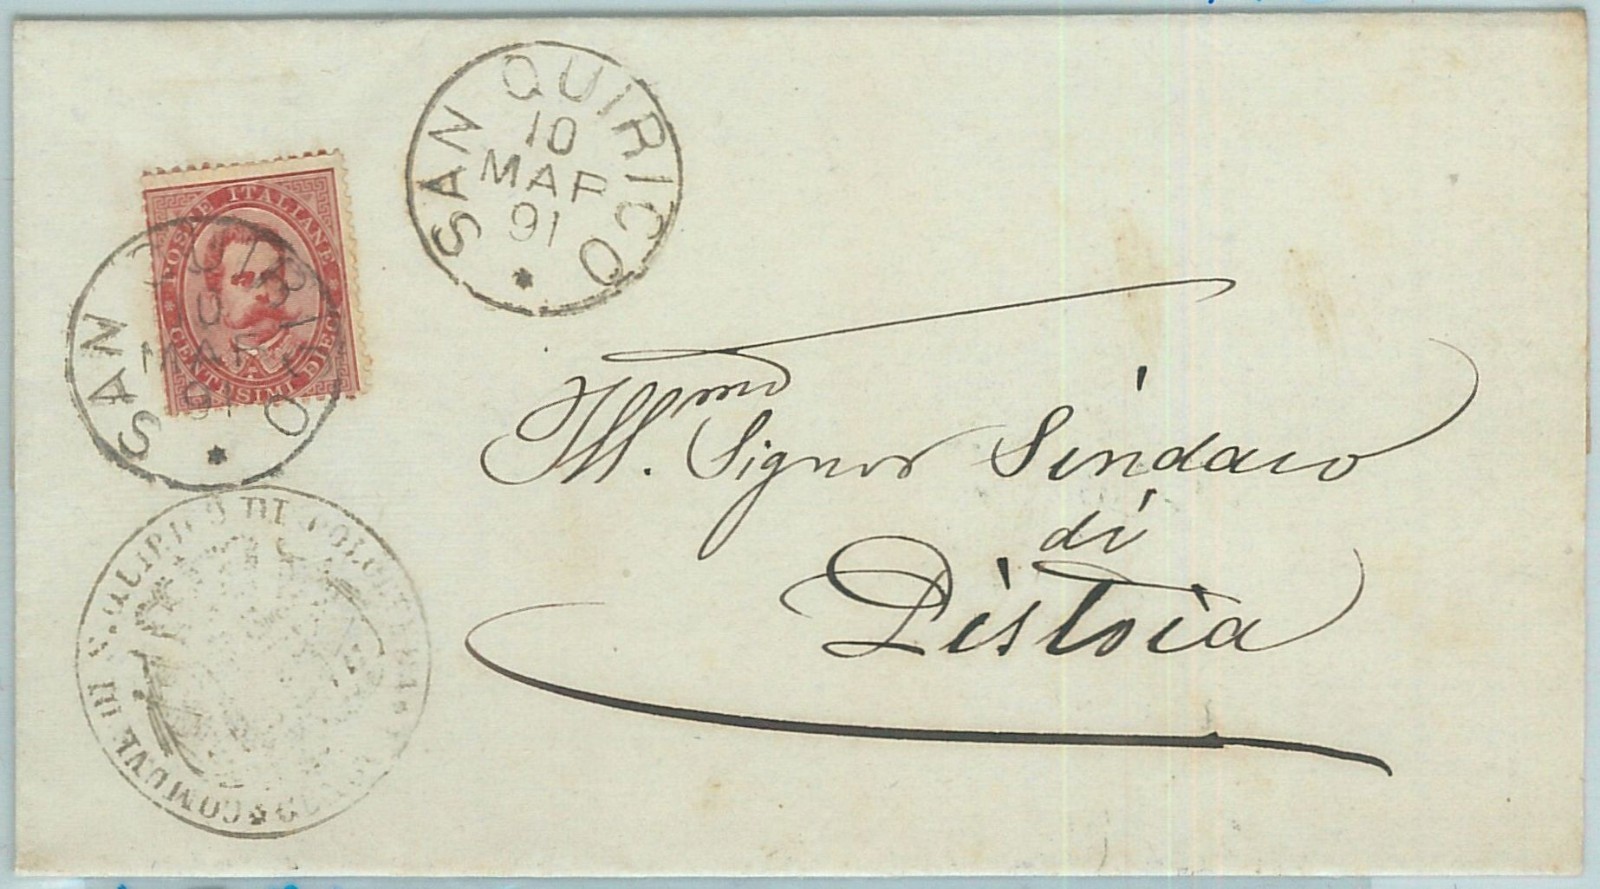 SAN QUIRICO
10
MAR
91
POSTE ITALIANE
CENTESIMI DIECI
SAN QUIRICO
MAR
91
Ill.mo Signor Sindaco
di
Pistoia
COMUNE DI S. QUIRICO DI